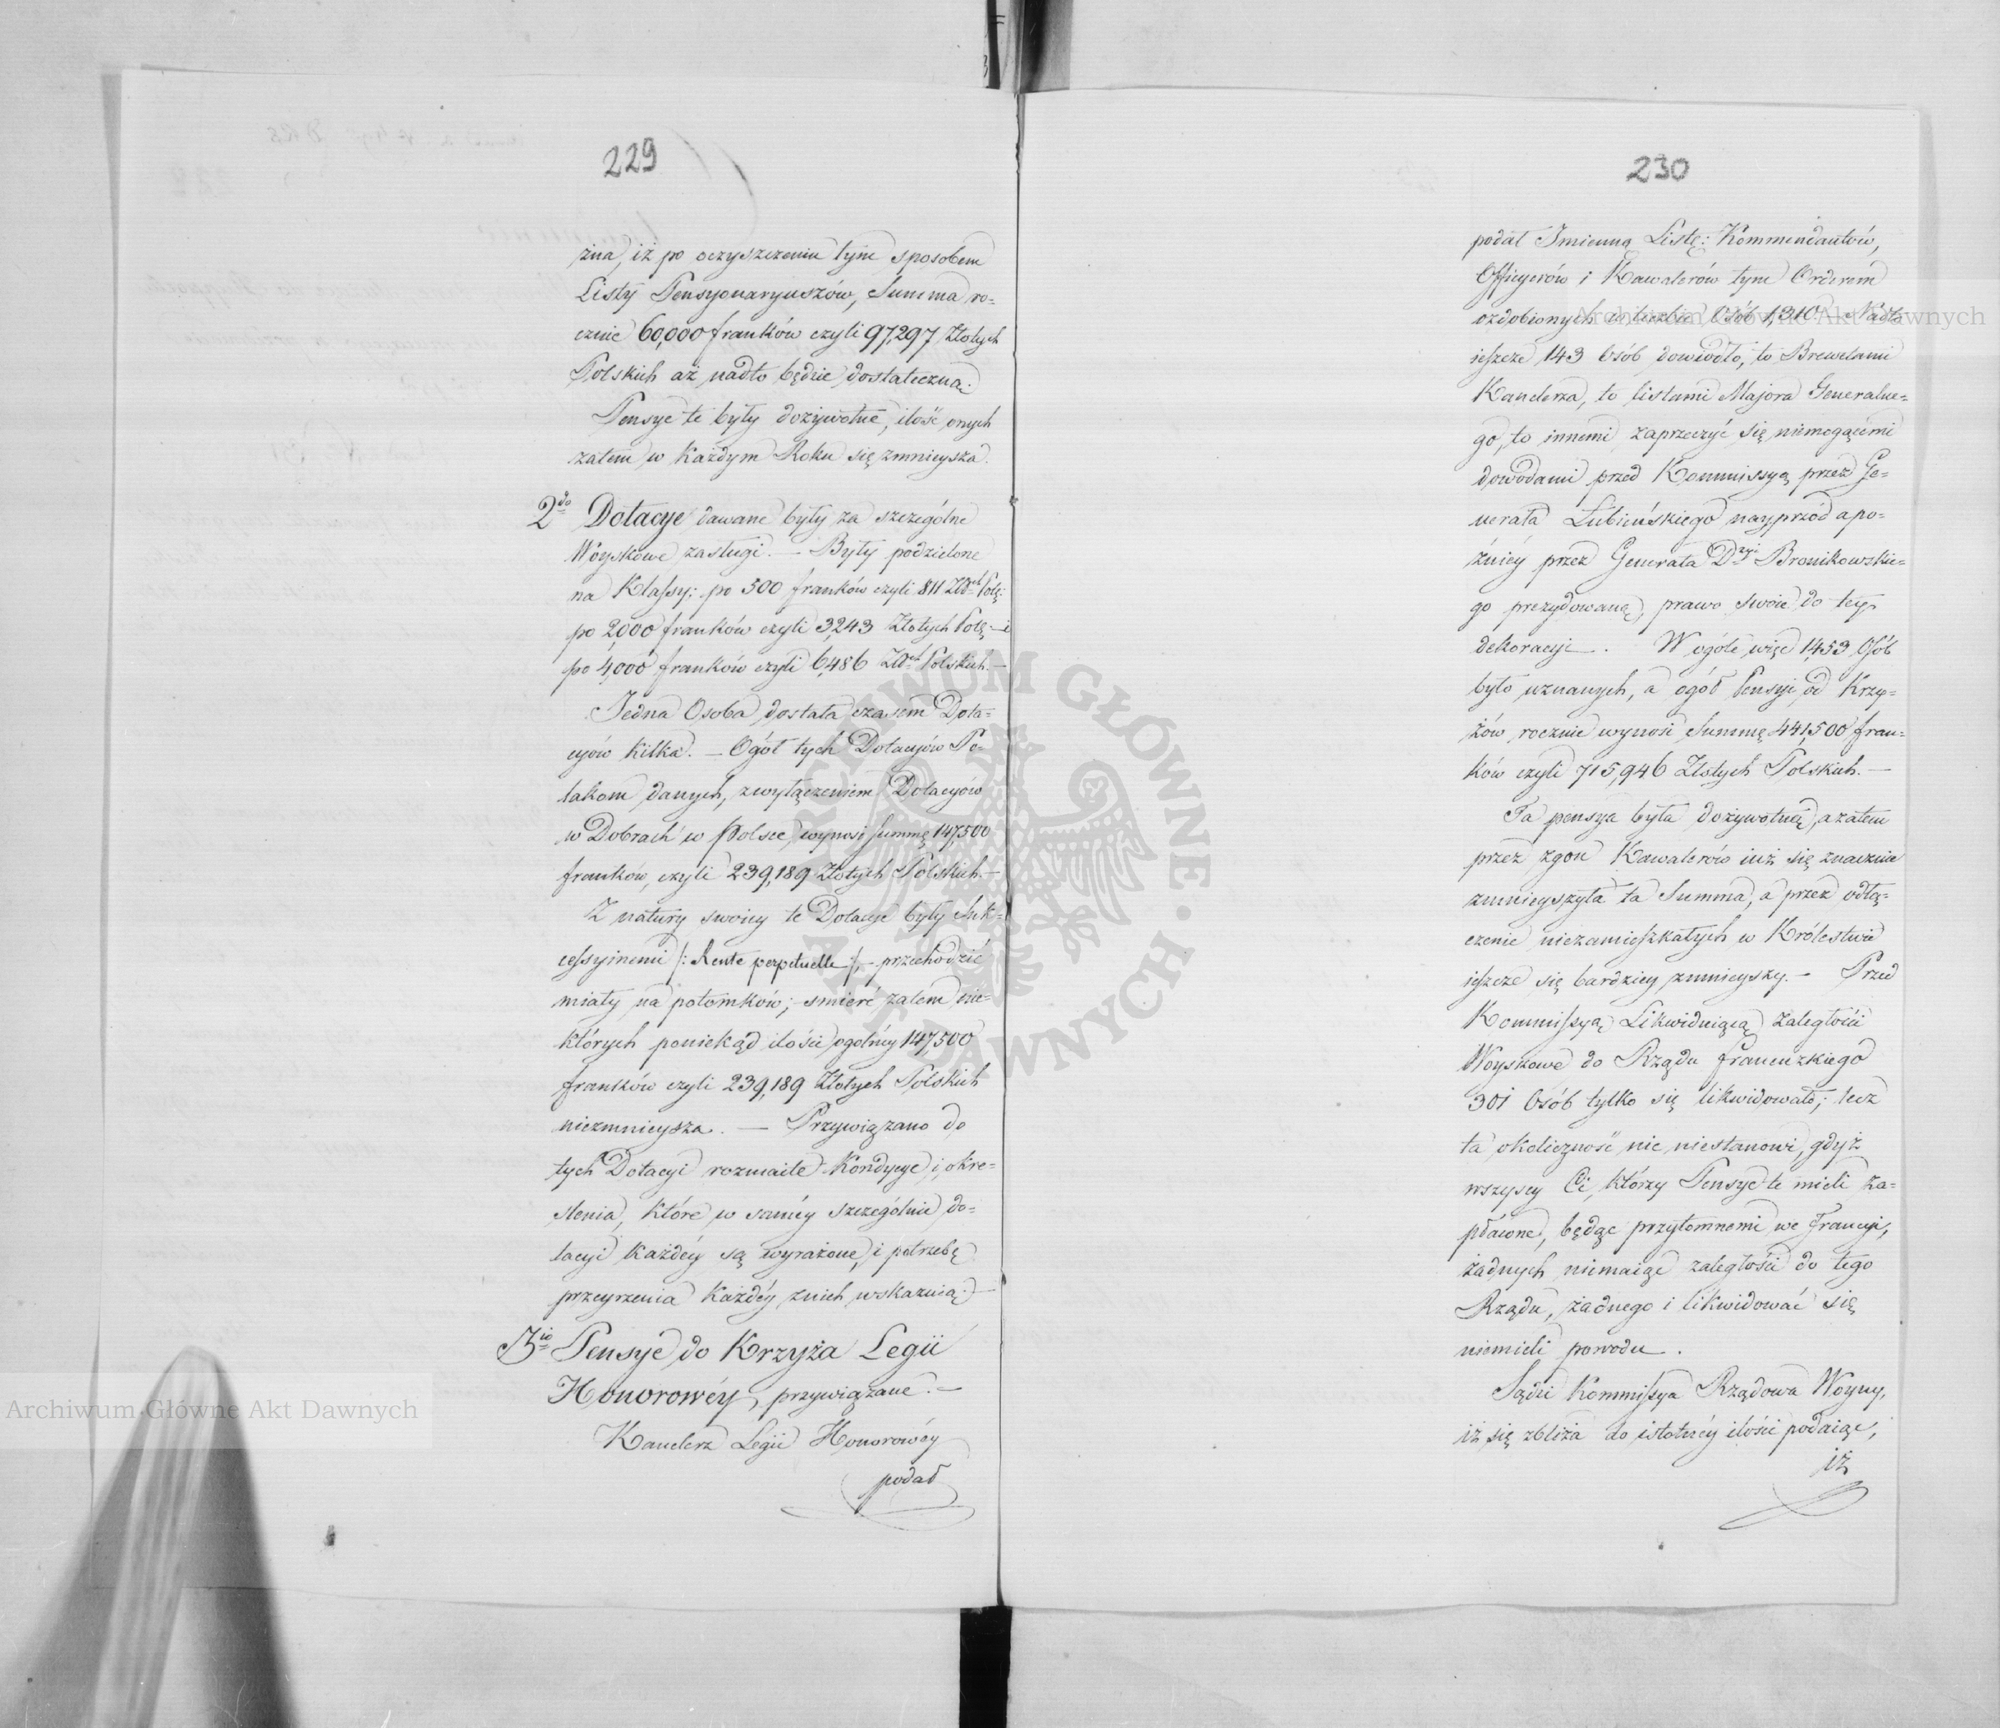 229
żna, iż po oczyszczeniu tym sposobem
Listy Pensyonaryuszów, Summa ro-
cznie 60,000 franków czyli 97,297 Złotych
Polskich aż nadto będzie dostateczną.
Pensye te były dożywotnie, ilość onych
zatem w każdym Roku się zmnieysza.
2do Dotacye dawane były za szczególne
Woyskowe zasługi. — Były podzielone
na Klassy: po 500 franków czyli 811 Złtch Pols:
po 2,000 franków czyli 3,243 Złotych Pols: i
po 4,000 franków czyli 6,486 Złtch Polskich. —
Jedna Osoba dostała czasem Dota-
cyów kilka. — Ogół tych Dotacyów Po-
lakom danych, z wyłączeniem Dotacyów
w Dobrach w Polsce, wynosi Summę 147,500
franków, czyli 239,189 Złotych Polskich. —
Z natury swoiey te Dotacye były Suk-
cessyinemi /: Rente perpetuelle :/, — przechodzić
miały na potomków; — śmierć zatem nie-
których poniekąd ilości ogólney 147,500
franków czyli 239,189 Złotych Polskich
niezmnieysza. — Przywiązano do
tych Dotacyi rozmaite Kondycye i okre-
ślenia, które w saméy szczególnie do-
tacyi każdéy są wyrażone, i potrzebę
przeyrzenia każdéy z nich wskazuią. —
3io Pensye do Krzyża Legii
Honorowéy przywiązane. —
Kanclerz Legii Honorowéy
podał
230
podał Imienną Listę: Kommendantów,
Officyerów i Kawalerów tym Orderem
ozdobionych w liczbie Osób 1,310. — Nadto
ieszcze 143 Osób dowiodło, to Brewetami
Kanclerza, to listami Majora Generalne-
go, to innemi zaprzeczyć się niemogącemi
dowodami przed Kommissyą przez Ge-
nerała Łubieńskiego nayprzód a po-
źniéy przez Generała Dyzyi Bronikowskie-
go prezydowaną, prawo swoie do tey
dekoracyi. W ogóle więc 1,453 Osób
było uznanych, a ogół Pensyi od Krzy-
żów rocznie wynosi Summę 441,500 fran-
ków czyli 715,946 Złotych Polskich. —
Ta pensya była dożywotnią, a zatem
przez zgon Kawalerów iuż się znacznie
zmnieyszyła ta Summa, a przez odłą-
czenie niezamieszkałych w Królestwie
ieszcze się bardziey zmnieyszy. — Przed
Kommissyą Likwiduiącą zaległości
Woyskowe do Rządu francuzkiego
301 Osób tylko się likwidowało; lecz
ta okoliczność nic niestanowi, gdyż
wszyscy Ci, którzy Pensye te mieli za-
płacone, będąc przytomnemi we Francyi,
żadnych niemaiąc zaległości do tego
Rządu, żadnego i likwidować się
niemieli powodu.
Sądzi Kommissya Rządowa Woyny,
iż się zbliża do istotnéy ilości podaiąc,
iż
Archiwum Główne Akt Dawnych
Archiwum Główne Akt Dawnych
ARCHIWUM GŁÓWNE • AKT DAWNYCH •